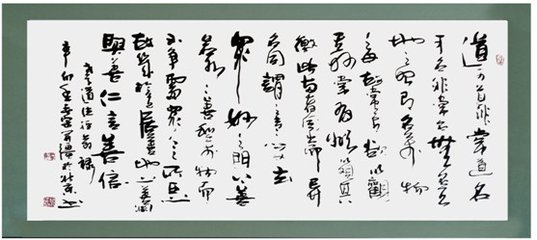 道可道非常道名
可名非常名無名天
地之始有名万物
之母故常無欲以觀
其妙常有欲以觀其
徼此两者同出而异
名同謂之玄玄之又玄
眾妙之門上善
若水水善利万物而
不争處眾人之所惡
故幾於道居善地心善淵
與善仁言善信
老子道德经節录
辛卯年 於北京